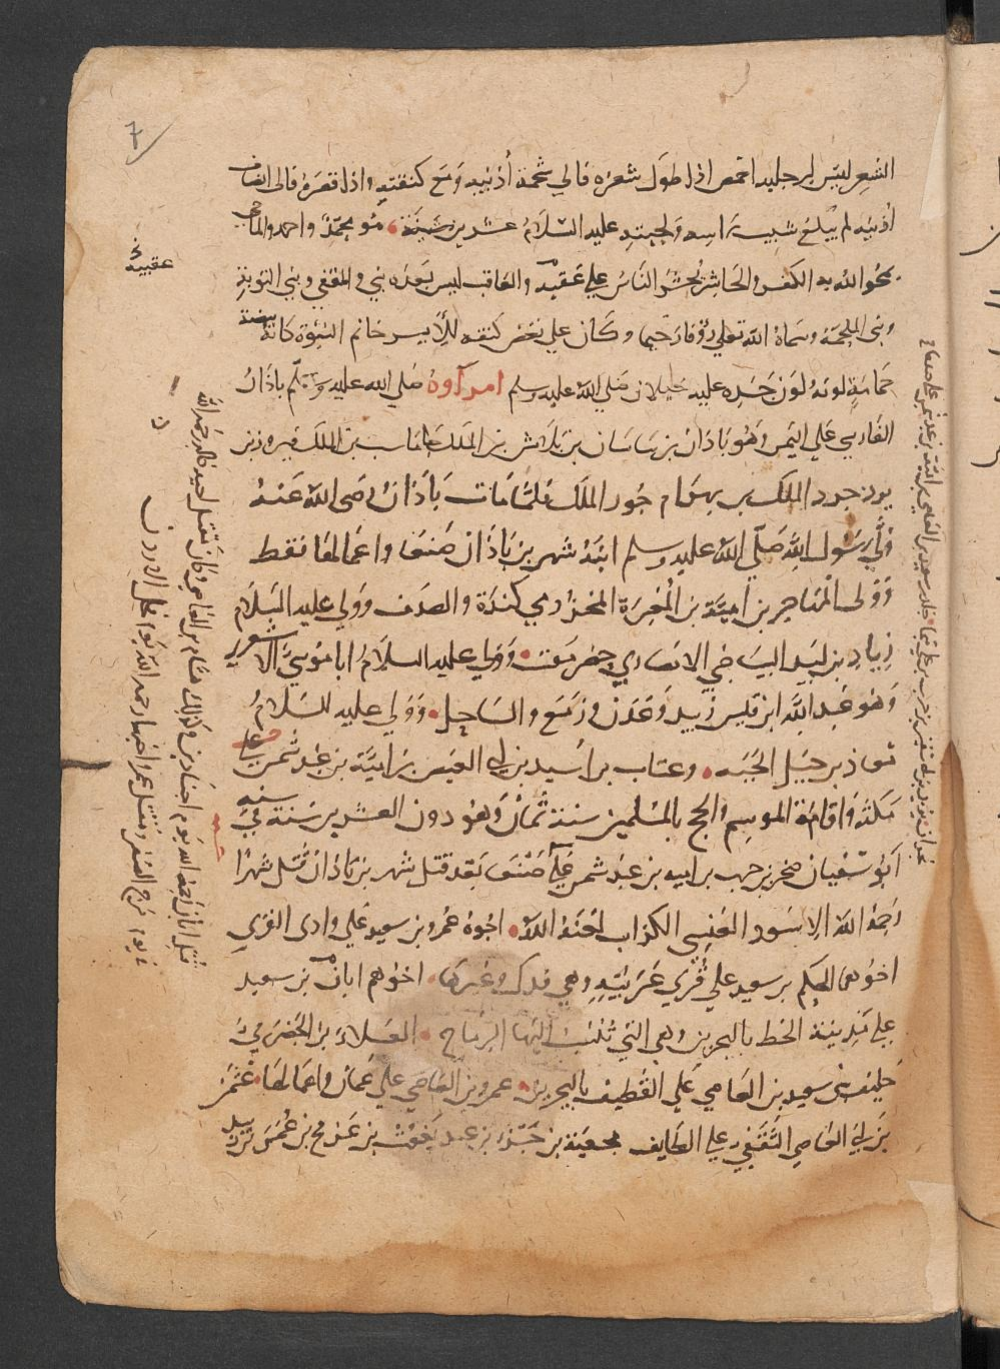 7
الشعر ليس لرجليه اخمص اذا طول شعره فالي شحمة أذنيه ومع كتفيه واذا قصره فالى انصاف
أذنيه لم يبلغ شيب راسه ولحيته عليه السلام عشرين شيبة، هو محمد واحمد والماحي
يمحو الله به الكفر والحاشر يُحشر الناسُ علي عقبه والعاقب ليس بعده نبي والمقفي ونبي التوبة
ونبي الملحمة وسماهُ الله تعلي رؤفا رحيما وكان علي نغض كتفه الأيسر خاتم النبوة كانه بيضة
حمامة لونه لون جسده عليه خيلان صلي الله عليه وسلم امرآوهُ صلي الله عليه وسلم باذان
الفارسي علي اليمن وهو باذان بن ساسان بن بلاش بن الملك جاماسب بن الملك فيروز بن
يزدجرد الملك بن بهرام جور الملك فلما مات باذان رضي الله عنهُ
ولّي رسول الله صلّي الله عليه وسلم ابنهُ شهر بن باذان صنعا واعمالها فقط
وولى المهاجر بن امية بن المغيرة المخزومي كندة والصدف وولي عليه السلام
زياد بن لبيد البياضي الانصاري حضرموت، وولي عليه السلام ابا موسي الاشعري
وهو عبد الله ابن قيس زبيد وعدن وزمع والساحل، وولي عليه السلامُ
معاذ بن جبل الجند، وعتاب بن اسيد بن ابي العيص بن امية بن عبد شمس علي
مكة واقامة الموسم والحج بالمسلمين سنة ثمان وهو دون العشرين سنة في سنه
أبو سفيان صخر بن حرب بن اميه بن عبد شمس علي صنعا بعد قتل شهر بن باذان قتل شهرا
رحمهُ الله الاسود العنسي الكذاب لعنهُ الله، اخوهُ عمرو بن سعيد علي وادى القري
اخوهما الحكم بن سعيد علي قُري عربيّةٍ وهي فدك وغيرها، اخوهم ابان بن سعيد
علي مدينة الخط بالبحرين وهي التي تُنسبُ اليها الرماح، العلاءُ بن الحضرمي
حليف بني سعيد بن العاصي علي القطيف بالبحرين، عمرو بن العاصي علي عُمان واعمالها، عثمن
بن ابي العاصي الثقفي علي الطايف محمية بن جزء بن عبد يغوث بن عريج بن عمرو بن زبيد
عقبيه
قتل ابان رحمه الله يوم اجنادين وكذلك هشام بن العاصي وكان قتل اخيه خالد رحمه الله
يوم مرج الصفر وقتل عمر اخيهما رحمه الله يوم فحل الاردن